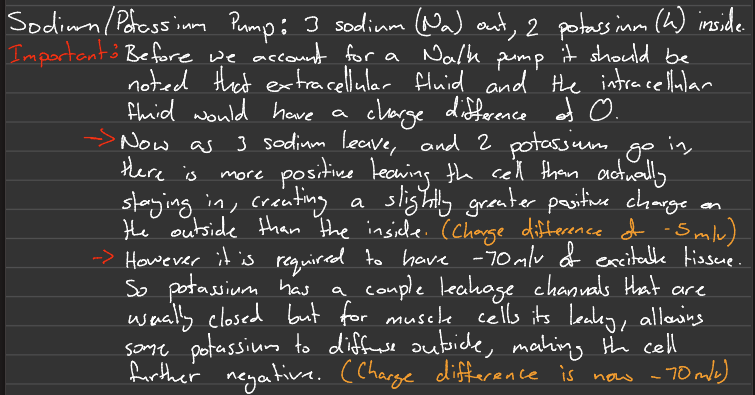 Sodium/Potassium Pump: 3 sodium (Na) out, 2 potassium (K) inside.
Important: Before we account for a Na/K pump it should be
noted that extracellular fluid and the intracellular
fluid would have a charge difference of O.
→ Now as 3 sodium leave, and 2 potassium go in,
there is more positive leaving the cell than actually
staying in, creating a slightly greater positive charge on
the outside than the inside. (Charge difference of -5m/v)
→ However it is required to have -70m/v of excitable tissue.
So potassium has a couple leakage channals that are
usually closed but for muscle cells its leaky, allowing
some potassium to diffuse outside, making the cell
further negative. (Charge difference is now -70m/v)